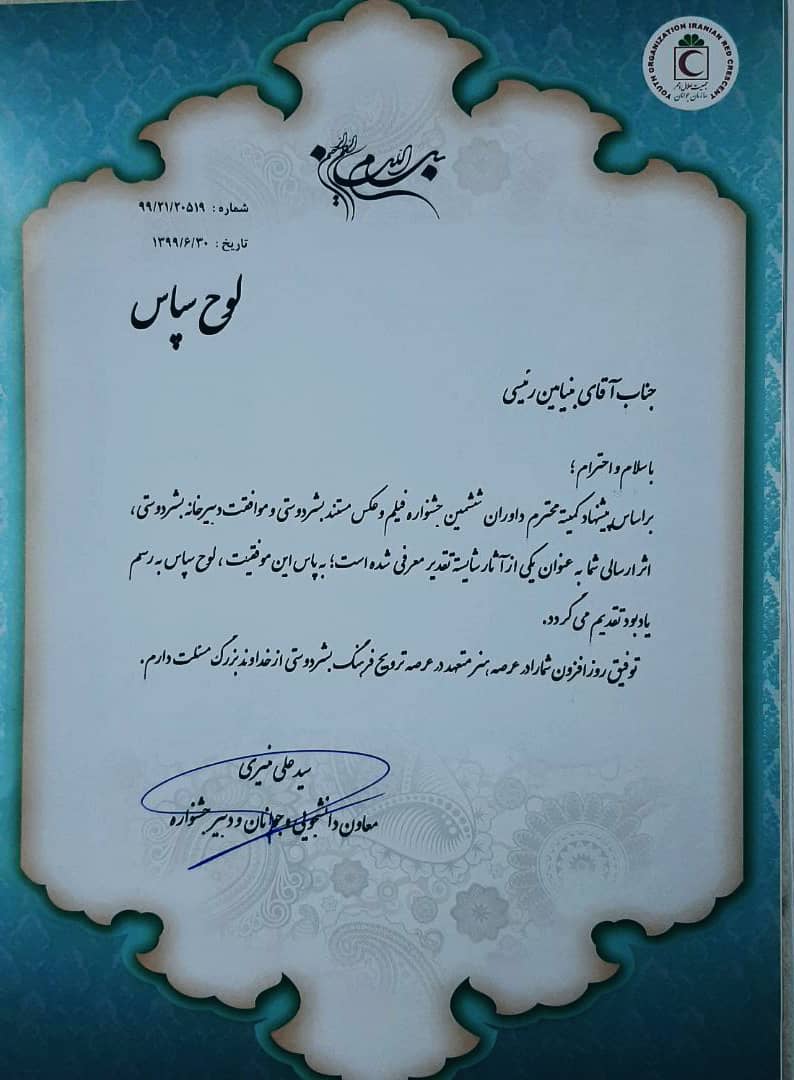 YOUTH ORGANIZATION IRANIAN RED CRESCENT
جمعیت هلال احمر
سازمان جوانان
بسم الله الرحمن الرحیم
شماره : ۹۹/۲۱/۲۰۵۱۹
تاریخ : ۱۳۹۹/۶/۳۰
لوح سپاس
جناب آقای بنیامین رئیسی
با سلام و احترام ؛
براساس پیشنهاد کمیته محترم داوران ششمین جشنواره فیلم و عکس مستند بشردوستی و موافقت دبیرخانه بشردوستی ،
اثر ارسالی شما به عنوان یکی از آثار شایسته تقدیر معرفی شده است؛ به پاس این موفقیت ، لوح سپاس به رسم
یادبود تقدیم می گردد.
توفیق روز افزون شما را در عرصه هنر متعهد در عرصه ترویج فرهنگ بشردوستی از خداوند بزرگ مسئلت دارم.
سید علی منیری
معاون دانشجویی و جوانان و دبیر جشنواره